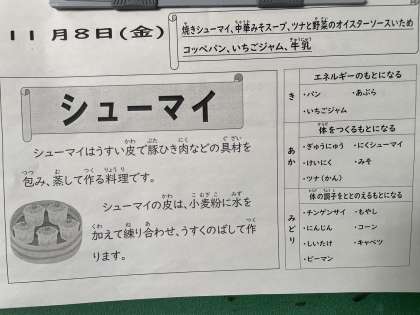 11月8日(金)
焼きシューマイ、中華みそスープ、ツナと野菜のオイスターソースいため
コッペパン、いちごジャム、牛乳
シューマイ
シューマイはうすい皮で豚ひき肉などの具材を
包み、蒸して作る料理です。
シューマイの皮は、小麦粉に水を
加えて練り合わせ、うすくのばして作
ります。
き
エネルギーのもとになる
・パン ・あぶら
・いちごジャム
あか
体をつくるもとになる
・ぎゅうにゅう ・にくシューマイ
・けいにく ・みそ
・ツナ(かん)
みどり
体の調子をととのえるもとになる
・チンゲンサイ ・もやし
・にんじん ・コーン
・しいたけ ・キャベツ
・ピーマン